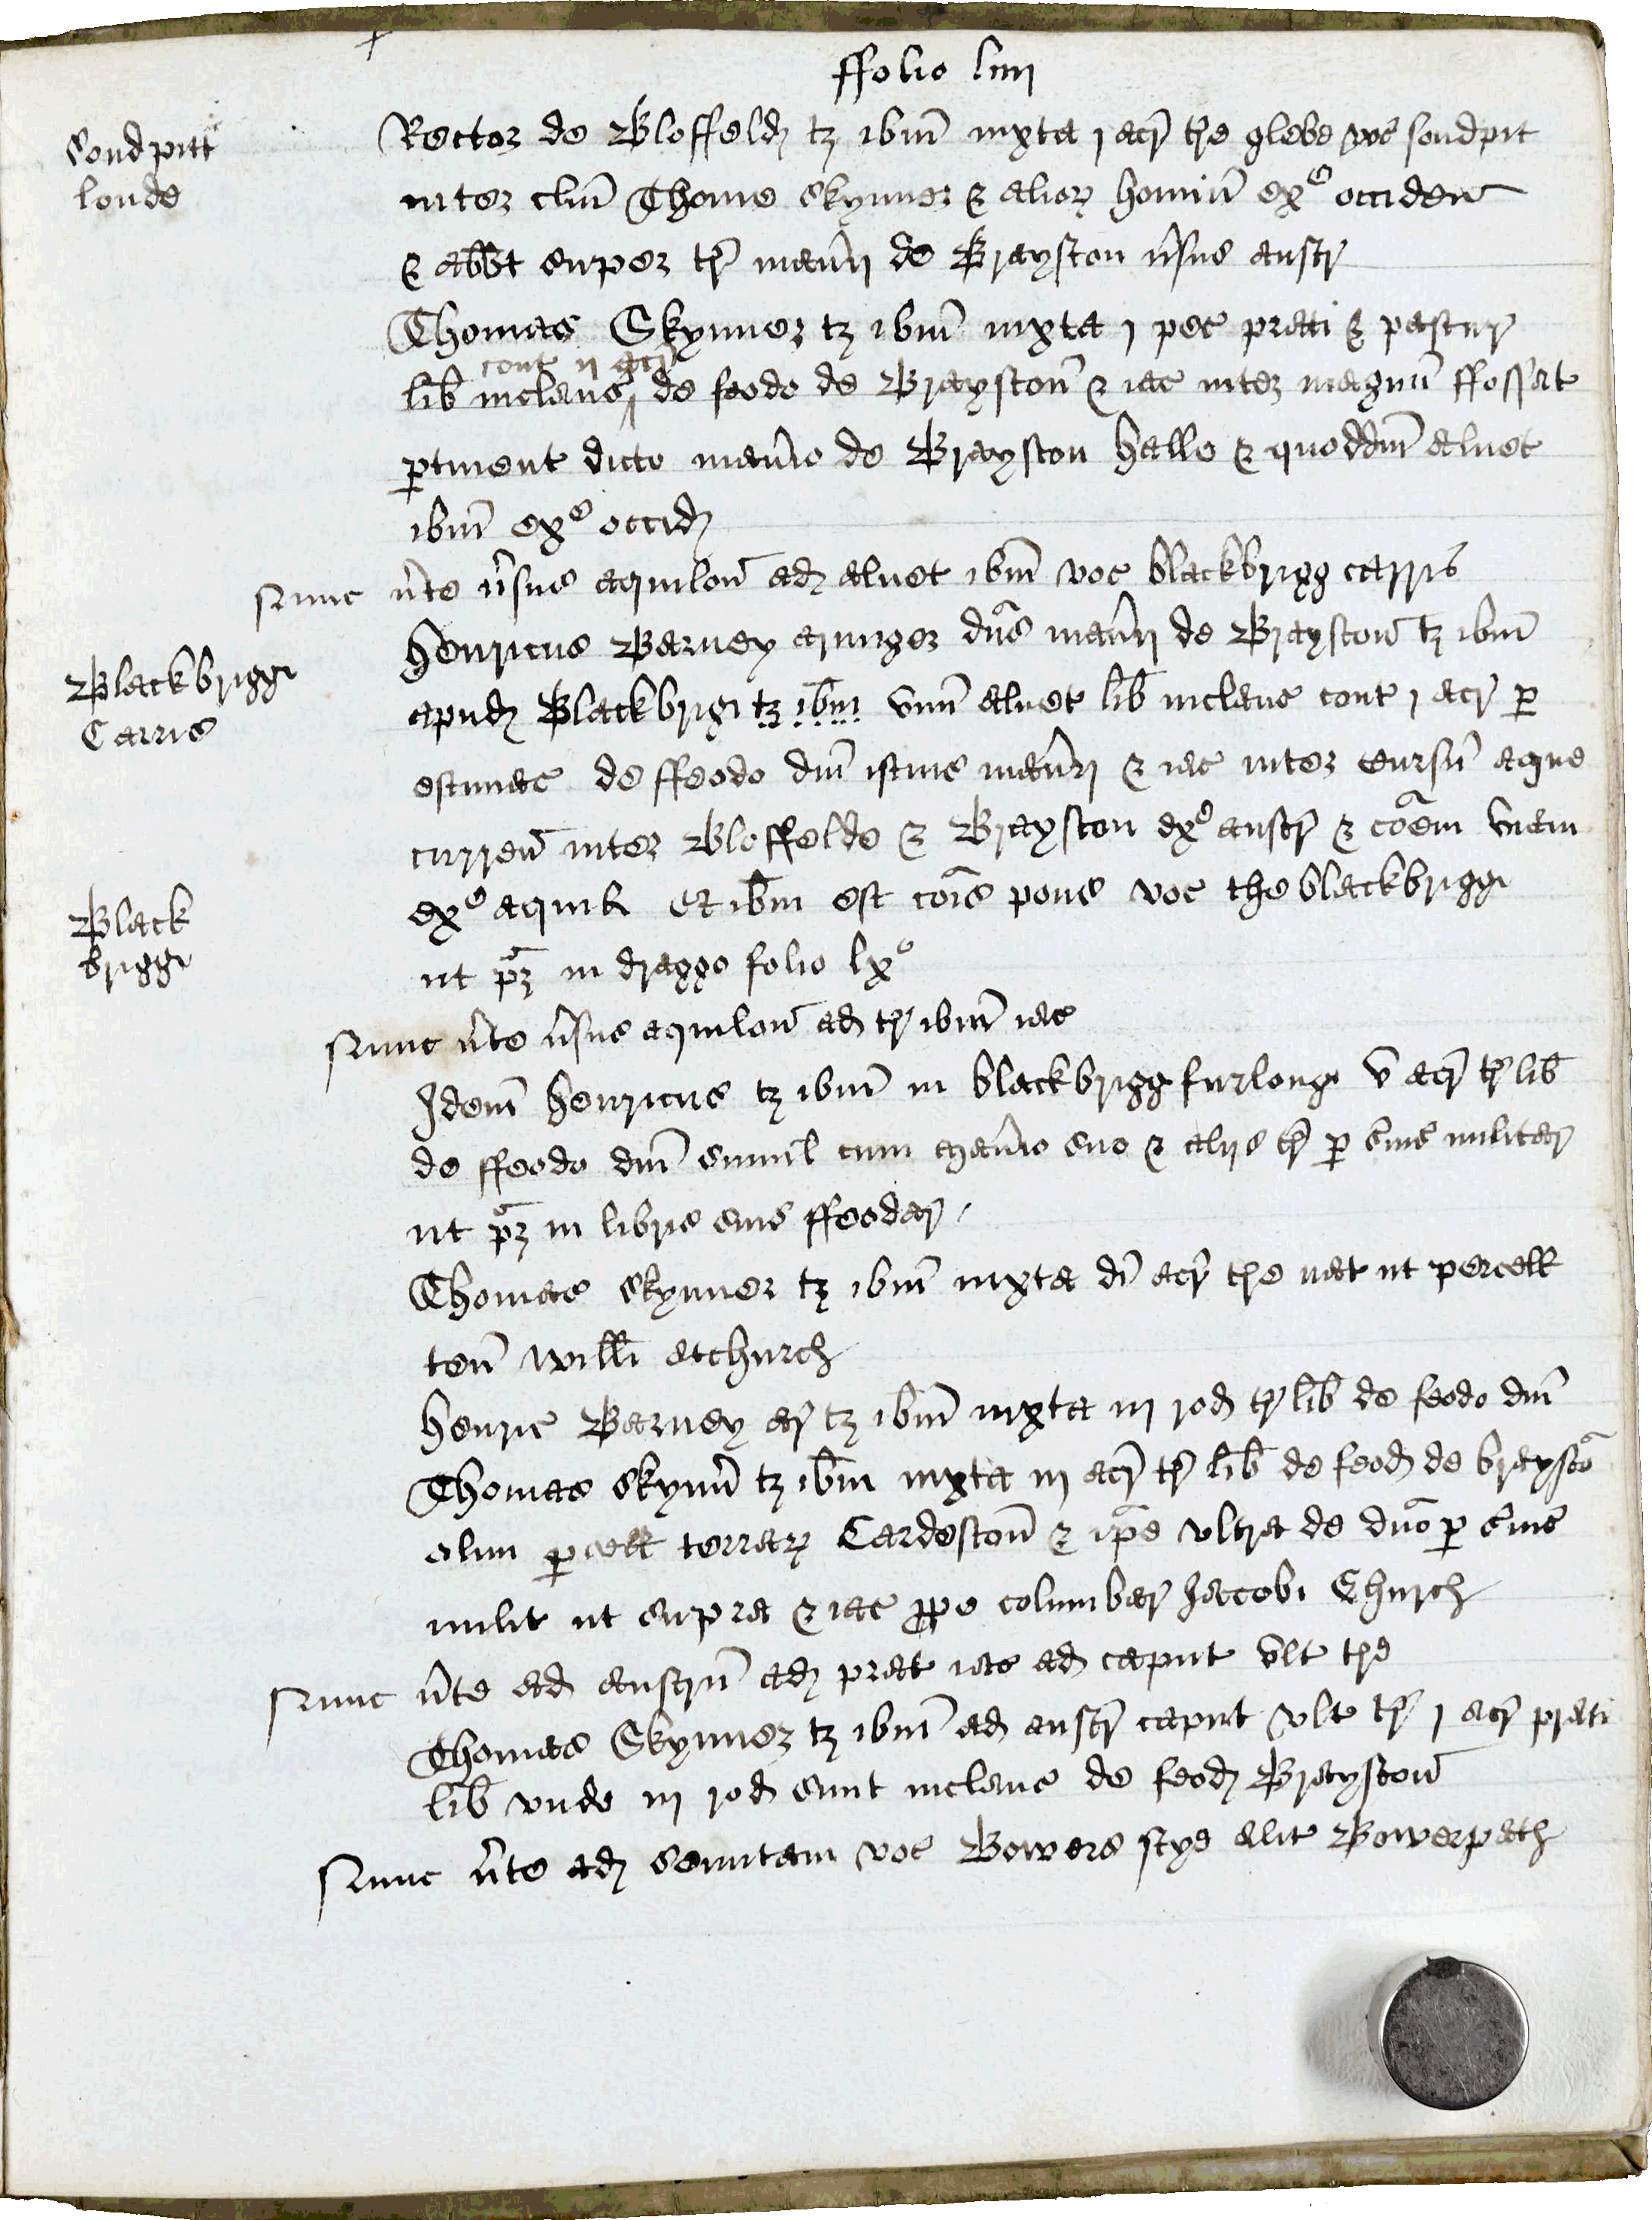 ffolio liiij
Sondpitt
londe
Rector de Bloffeld tz ibm iuxta j acr tre glebe voc sondpit
inter clm Thome Skynner & alior hominu exo occiden
& abbt super tr man'ij de Brayston v'sus austr
Thomas Skynner tz ibm iuxta j pec prati & pastur
cont ij acr
lib inclaus de feodo de Braystoñ & iac inter magnu ffossat
ptinent dicto man'io de Brayston halle & quoddm alnet
ibm exo occid
Nunc v'te v'sus aquilon ad alnet ibm voc blackbrigg carris
Blackbrigg
Carris
Henricus Barney armiger dns man'ij de Braystoñ tz ibm
apud Blackbrig tz ibm vnu alnet lib inclaus cont j acr p
estimac de ffeodo dni istius man'ij & iac inter cursu aque
curren inter Bloffelde & Brayston exo austr & coem viam
Black
brigg
exo aquil Et ibm est cois pons voc the blackbrigg
ut pz in dragge folio lxo
Nunc v'te v'sus aquilon ad tr ibm iac
Idem Henricus tz ibm in blackbrigg furlong v acr tr lib
de ffeodo dni simul cum man'io suo & alijs tr p s'uic militar
ut pz in libris suis ffeodar
Thomas Skynner tz ibm iuxta di acr tre nat ut percell
ten willi atchurch
Henric Barney ar tz ibm iuxta iij rod tr lib de feodo dni
Thomas Skynn tz ibm iuxta iij acr tr lib de feod de braysto
olim pcell terrar Cardestoñ & ipe vltra de dno p s'uic
milit ut supra & iac ppe columbar Jacobi Church
Nunc v'te ad austru ad prat iac ad caput vlt tre
Thomas Skynner tz ibm ad austr caput vlt tr j acr prati
lib vnde iij rod sunt inclaus de feod Braystoñ
Nunc v'te ad semitam voc Bowers stye alit Bowerpath